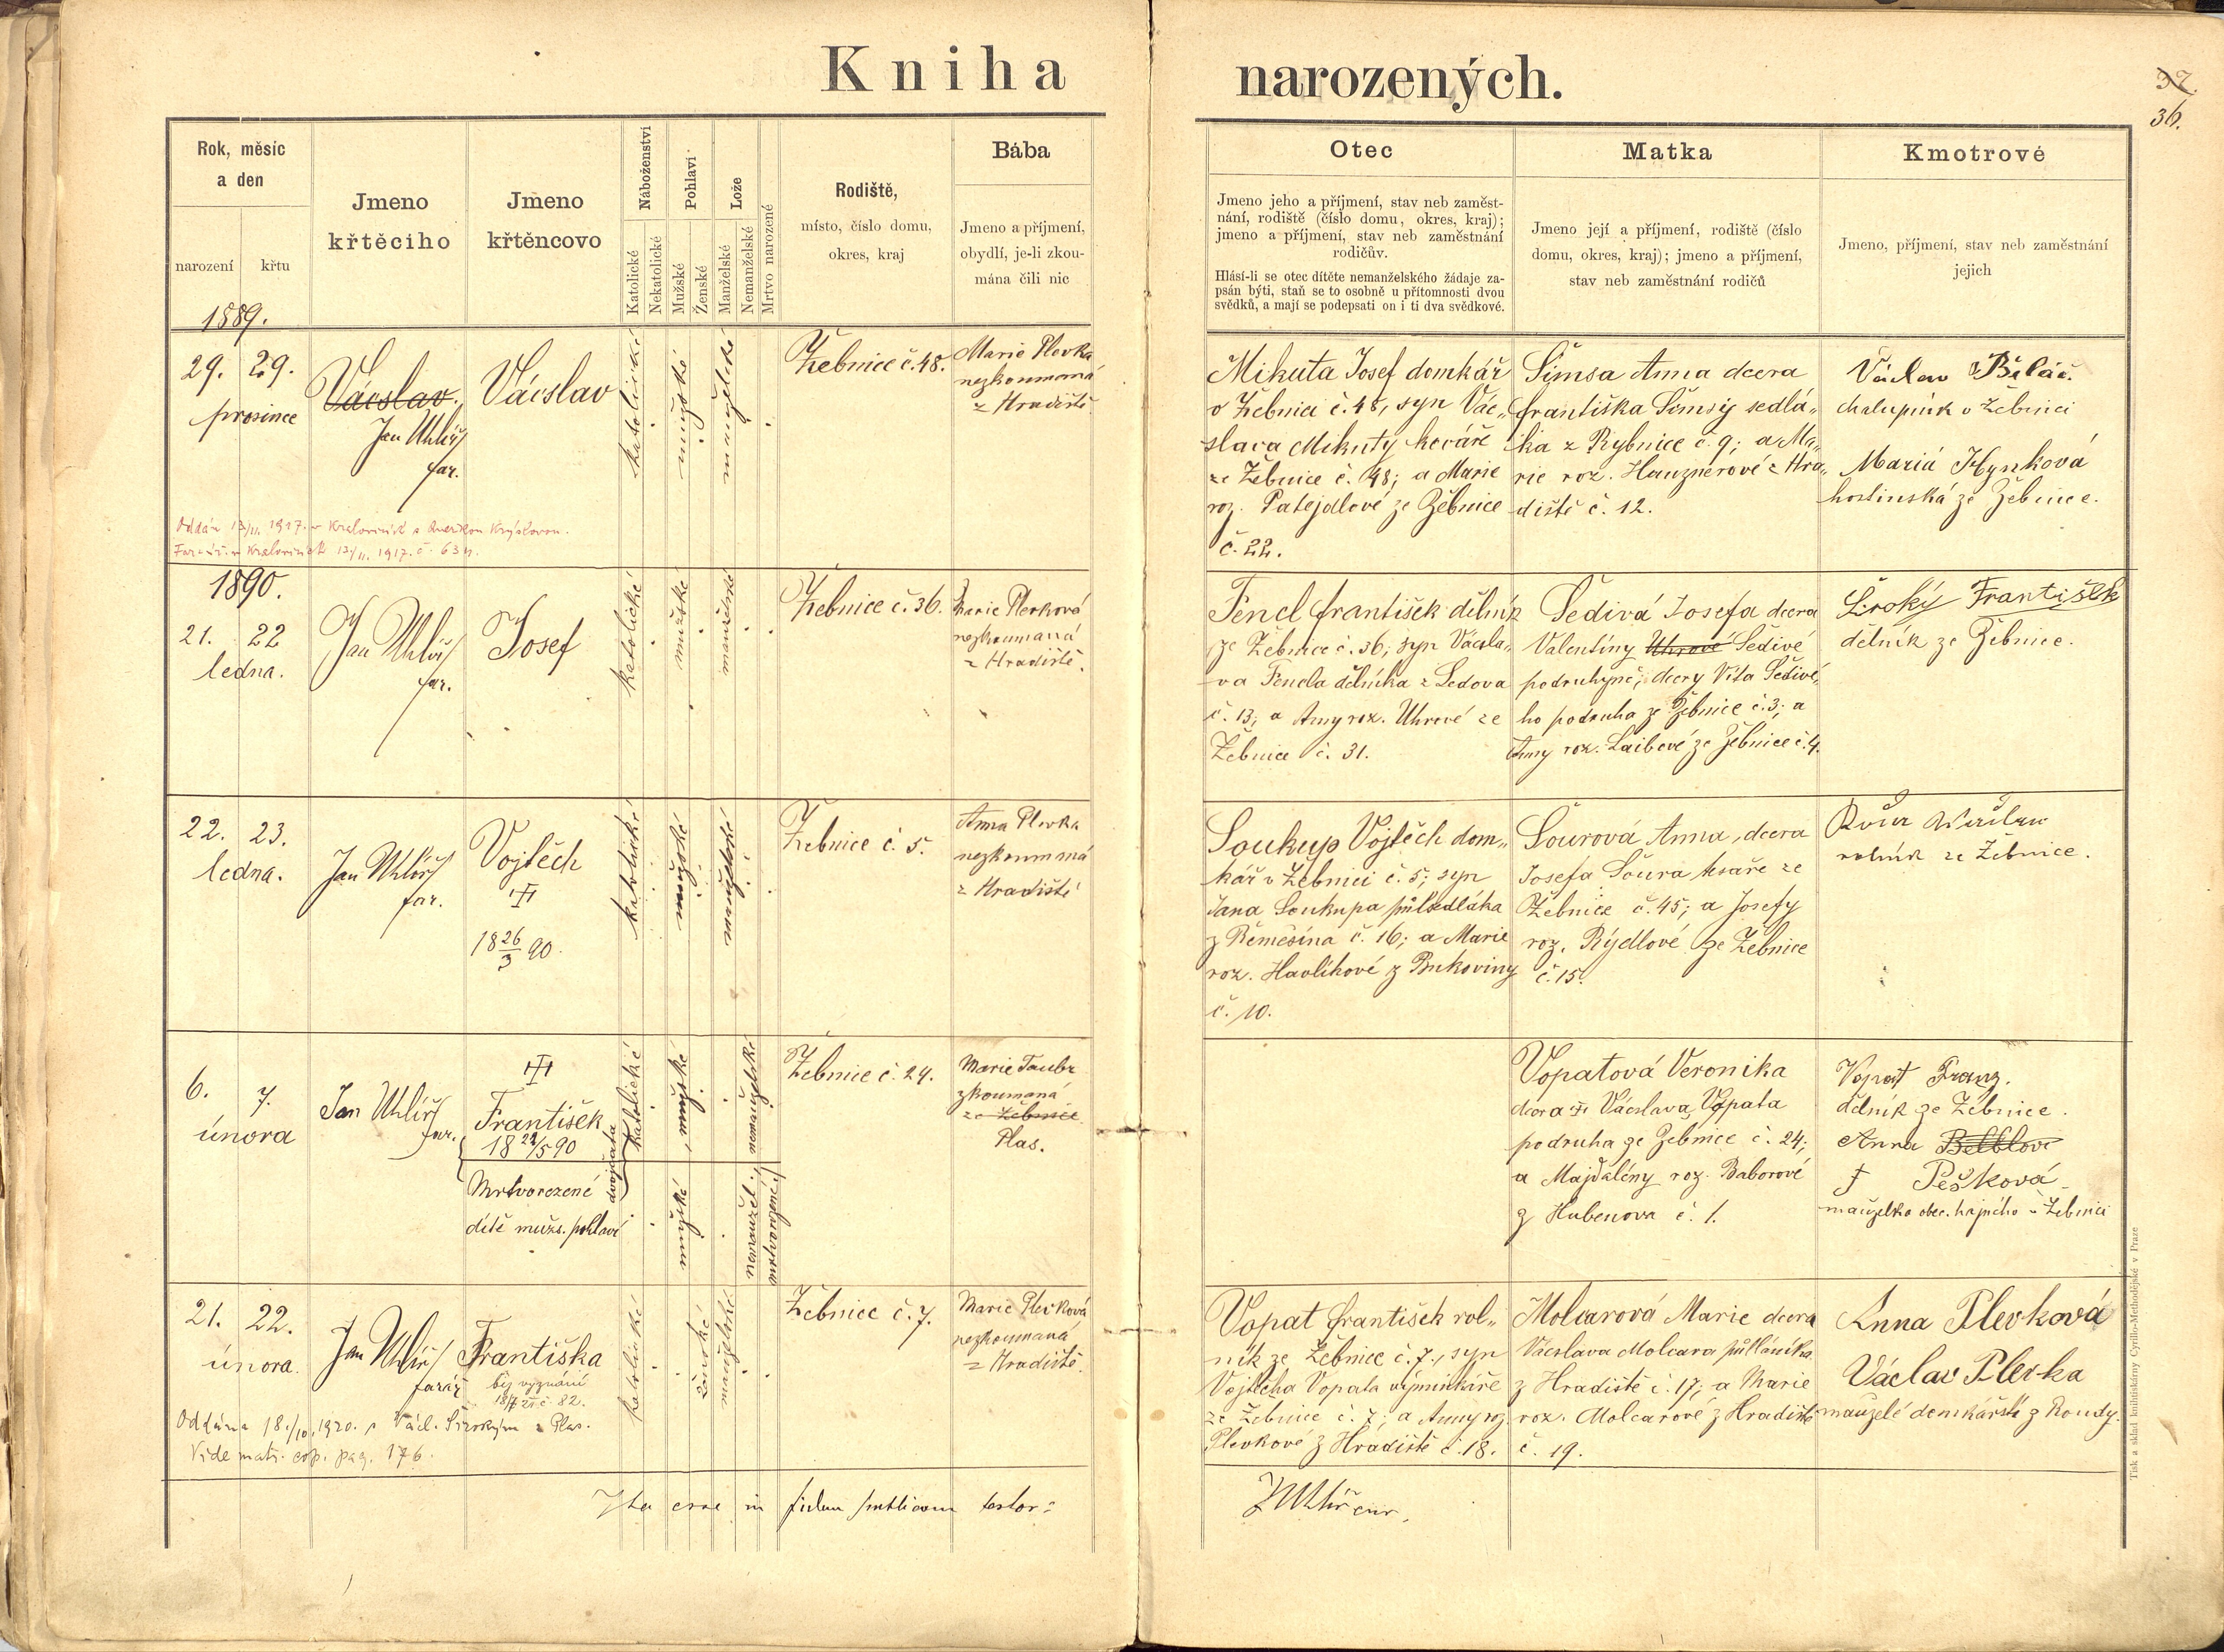 Kniha narozených.
37.
36.
Rok, měsíc
a den
narození
křtu
Jmeno
křtěcího
Jmeno
křtěncovo
Náboženství
Katolické
Nekatolické
Pohlaví
Mužské
Ženské
Lože
Manželské
Nemanželské
Mrtvo narozené
Rodiště,
místo, číslo domu,
okres, kraj
Bába
Jmeno a příjmení,
obydlí, je-li zkou-
mána čili nic
Otec
Jmeno jeho a příjmení, stav neb zaměst-
nání, rodiště (číslo domu, okres, kraj);
jmeno a příjmení, stav neb zaměstnání
rodičův.
Hlásí-li se otec dítěte nemanželského žádaje za-
psán býti, staň se to osobně u přítomnosti dvou
svědků, a mají se podepsati on i ti dva svědkové.
Matka
Jmeno její a příjmení, rodiště (číslo
domu, okres, kraj); jmeno a příjmení,
stav neb zaměstnání rodičů
Kmotrové
Jmeno, příjmení, stav neb zaměstnání
jejich
1889.
29. 29.
prosince
Vácslav.
Jan Uhlíř
far.
Vácslav
katolické
mužské
manželské
Žebnice č. 48.
Marie Plevka
nezkoumaná
z Hradiště
Mikuta Josef domkář
v Žebnici č. 48, syn Vác„
slava Mikuty kováře
ze Žebnice č. 48; a Marie
roz. Patejdlové ze Žebnice
č. 22.
Šimsa Anna dcera
Františka Šimsy sedlá„
ka z Rybnice č. 9; a Ma„
rie roz. Hauznerové z Hra„
diště č. 12.
Václav Běláč
chalupník v Žebnici
Mariá Hynková
hostinská ze Žebnice.
Oddán 13/II. 1917. v Kralovicích s
Far. úř. v Kralovicích 13/II. 1917. č. 634.
1890.
21. 22
ledna.
Jan Uhlíř
far.
Josef
katolické
mužské
manželské
Žebnice č. 36.
Marie Plevková
nezkoumaná
z Hradiště.
Fencl František dělník
ze Žebnice č. 36, syn Vácsla„
va Fencla dělníka z Ledova
č. 13; a Anny roz. Uhrové ze
Žebnice č. 31.
Šedivá Josefa dcera
Valentiny Uhrové Šedivé
podruhyně; dcery Víta Šedivé„
ho podruha ze Žebnice č. 3; a
Anny roz. Laibové ze Žebnice č. 4.
Široký František
dělník ze Žebnice.
22. 23.
ledna.
Jan Uhlíř
far.
Vojtěch
18 26/3 90.
katolické
mužské
manželské
Žebnice č. 5.
Anna Plevka
nezkoumaná
z Hradiště
Soukup Vojtěch dom„
kář v Žebnici č. 5; syn
Jana Soukupa půlsedláka
z Řeměšína č. 16; a Marie
roz. Havlíkové z Bukoviny
č. 10.
Šourová Anna, dcera
Josefa Šoura tesaře ze
Žebnice č. 45; a Josefy
roz. Rýdlové ze Žebnice
č. 15.
rolník ze Žebnice.
6. 7.
února
Jan Uhlíř
far.
František
18 22/5 90
Mrtvorozené
dítě mužs. pohlaví
dvojčata
katolické
mužské
nemanželské
mužské
nemanžel.
mrtvorozené
Žebnice č. 24.
Marie Taubr
zkoumaná
ze Žebnice
Plas.
Vopatová Veronika
dcera Vácslava Vopata
podruha ze Žebnice č. 24;
a Majdalény roz. Baborové
z Hubenova č. 1.
Vopat Franz.
dělník ze Žebnice.
Anna Belblove
Pešková
manželka obec. hajného v Žebnici
21. 22.
února.
Jan Uhlíř
farář
Františka
bez vyznání
katolické
ženské
manželské
Žebnice č. 7.
Marie Plevková
nezkoumaná
z Hradiště.
Vopat František rol„
ník ze Žebnice č. 7., syn
Vojtěcha Vopata výminkáře
ze Žebnice č. 7; a Anny roz.
Plevkové z Hradiště č. 18.
Molcarová Marie dcera
Vácslava Molcara půlláníka
z Hradiště č. 17; a Marie
roz. Molcarové z Hradiště
č. 19.
Anna Plevková
Václav Plevka
manželé domkářští z Koudy.
Oddána 18./10. 1920. s Václ. Širokým z Plas.
Vide matr. cop. pag. 176.
Ita esse in fidem publicam testor:
JUhlíř cur.
Tisk a sklad knihtiskárny Cyrillo-Methodějské v Praze